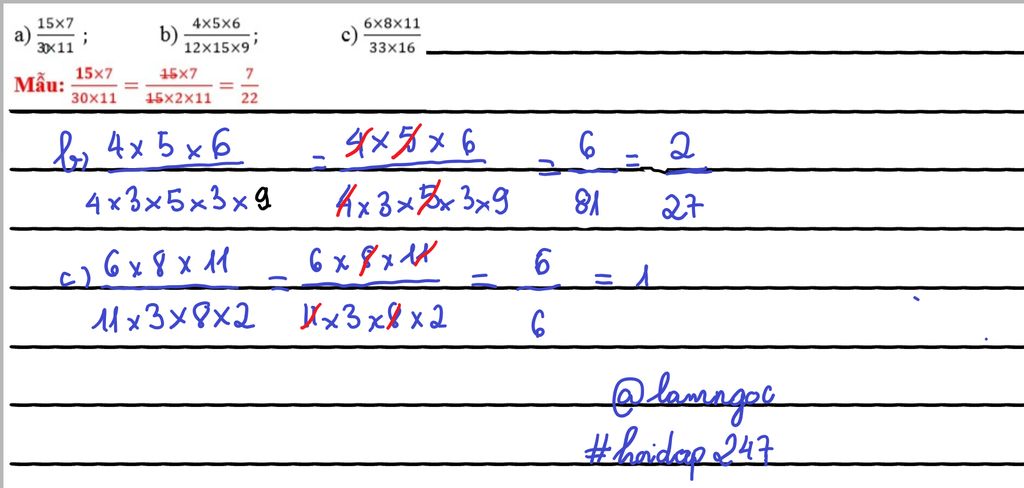 a) 15×7/30×11 ; b) 4×5×6/12×15×9 ; c) 6×8×11/33×16
Mẫu: 15×7/30×11 = 15×7/15×2×11 = 7/22
b) 4 × 5 × 6/4 × 3 × 5 × 3 × 9 = 4 × 5 × 6/4 × 3 × 5 × 3 × 9 = 6/81 = 2/27
c) 6 × 8 × 11/11 × 3 × 8 × 2 = 6 × 8 × 11/11 × 3 × 8 × 2 = 6/6 = 1
@lamngoc
#hoidap247